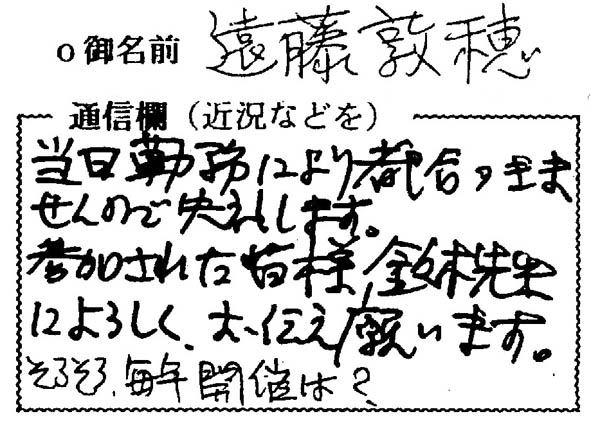 o 御名前 遠藤敦穂
通信欄（近況などを）
当日勤務により都合つきま
せんので失礼します。
参加された皆様、鈴木先生
によろしく、お伝え願います。
そろそろ、毎年開催は？